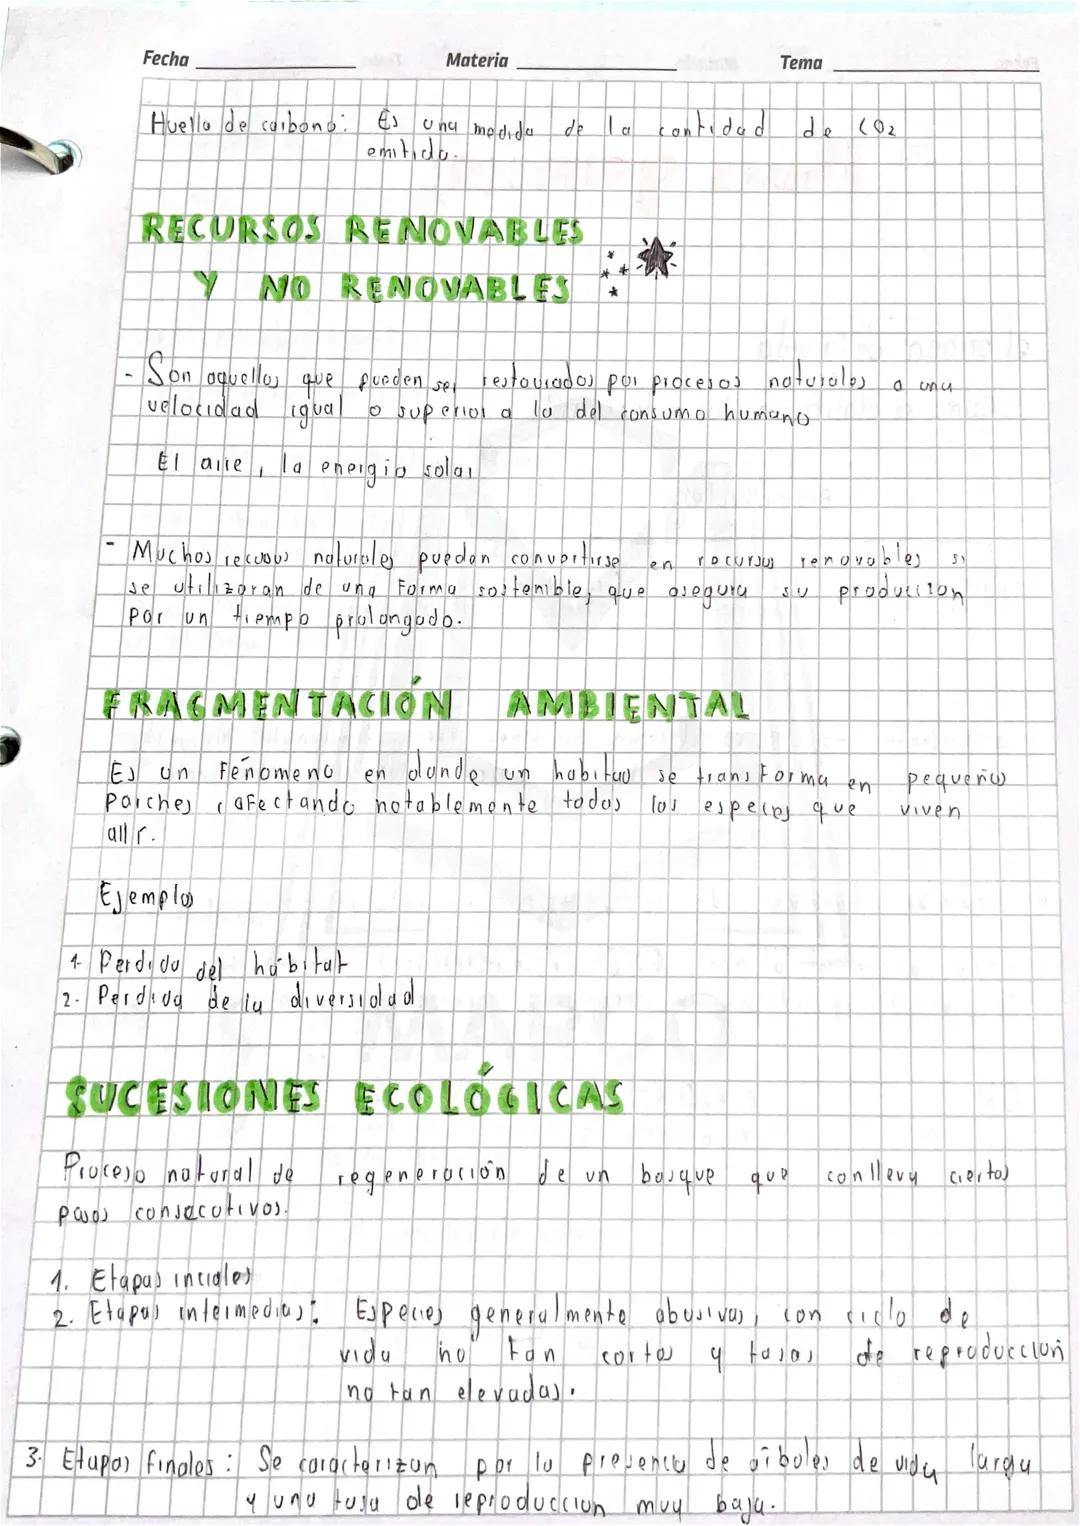 Fecha Materia Tema
Huella de carbono: Es una medida de la cantidad de CO2
emitida.
RECURSOS RENOVABLES
Y NO RENOVABLES
- Son aquellos que pueden ser restaurados por procesos naturales a una
velocidad igual o superior a la del consumo humano
El aire, la energia solar
- Muchos recursos naturales pueden convertirse en recursos renovables si
se utilizaran de una forma sostenible, que asegura su produccion
por un tiempo prolongado.
FRAGMENTACIÓN AMBIENTAL
Es un Fénomeno en donde un habitad se transforma en pequeños
parches, afectando notablemente todas las especies que viven
allí.
Ejemplos
1- Perdida del hábitat
2- Perdida de la diversidad
SUCESIONES ECOLÓGICAS
Proceso natural de regeneración de un bosque que conlleva ciertos
pasos consecutivos.
1. Etapas inciales
2. Etapas intermedias: Especies generalmente abusivas, con ciclo de
vida no tan cortos y tasas de reproducción
no tan elevadas.
3. Etapas finales: Se caracterizan por la presencia de árboles de vida larga
y una tasa de reproduccion muy baja.